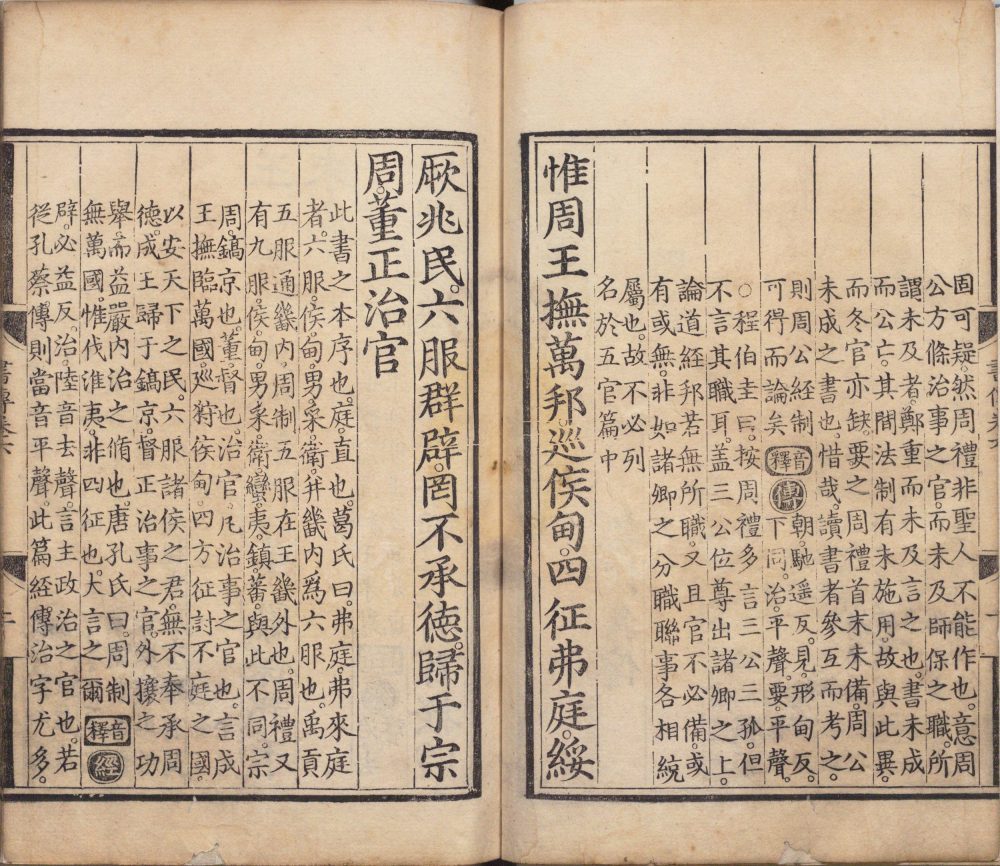 固可疑。然周禮非聖人不能作也。意周
公方條治事之官。而未及師保之職。所
謂未及者。鄭重而未及言之也。書未成
而公亡。其間法制有未施用。故與此異。
而冬官亦缺。要之周禮首末未備。周公
未成之書也。惜哉。讀書者參互而考之。
則周公經制
可得而論矣 音釋 傳 朝。馳遥反。見。形甸反。
下同。治。平聲。要。平聲。
○程伯圭曰。按周禮多言三公三孤。但
不言其職耳。盖三公位尊出諸卿之上。
論道經邦若無所職。又且官不必備。或
有或無。非如諸卿之分職聯事各相統
屬也。故不必列
名於五官篇中
惟周王撫萬邦。巡侯甸。四征弗庭。綏
厥兆民。六服群辟。罔不承德。歸于宗
周。董正治官
此書之本序也。庭。直也。葛氏曰。弗庭。弗來庭
者。六服。侯。甸。男。采。衛。并畿内爲六服也。禹貢
五服通畿内。周制五服在王畿外也。周禮又
有九服。侯。甸。男。采。衛。蠻。夷。鎮。蕃。與此不同。宗
周。鎬京也。董。督也。治官。凡治事之官也。言成
王撫臨萬國。巡狩侯甸。四方征討不庭之國。
以安天下之民。六服諸侯之君。無不奉承周
德。成王歸于鎬京。督正治事之官。外攘之功
舉。而益嚴内治之脩也。唐孔氏曰。周制
無萬國。惟伐淮夷。非四征也。大言之爾 音釋 經
辟。必益反。治。陸音去聲。言主政治之官也。若
從孔蔡傳則當音平聲。此篇經傳治字尤多。